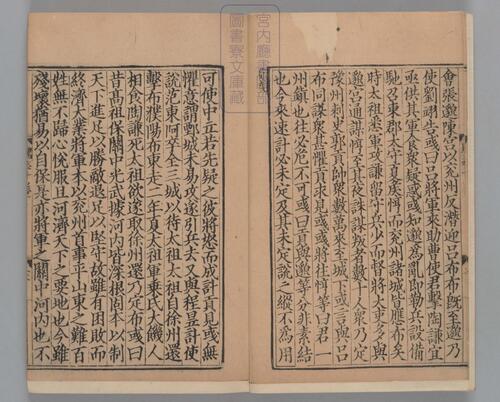 會張邈陳宮以兗州反濳迎呂布布旣至邈乃
使劉翊告彧曰呂將軍來助曹使君擊陶謙宜
亟供其軍食衆疑惑彧知邈爲亂卽勒兵設備
馳召東郡太守夏侯惇而兗州諸城皆應布矣
時太祖悉軍攻謙留守兵少而督將大吏多與
邈宮通謀惇至其夜誅謀叛者數十人衆乃定
豫州刺史郭貢帥衆數萬來至城下或言與呂
布同謀衆甚懼貢求見彧彧將往惇等曰君一
州鎮也往必危不可彧曰貢與邈等分非素結
也今來速計必未定及其未定說之縱不爲用
可使中立若先疑之彼將怒而成計貢見彧無
懼意謂鄄城未易攻遂引兵去又與程昱計使
說范東阿卒全三城以待太祖太祖自徐州還
擊布濮陽布東走二年夏太祖軍乗氏大饑人
相食陶謙死太祖欲遂取徐州還乃定布彧曰
昔高祖保關中光武據河內皆深根固本以制
天下進足以勝敵退足以堅守故雖有困敗而
終濟大業將軍本以兗州首事平山東之難百
姓無不歸心悅服且河濟天下之要地也今雖
殘壞猶易以自保是亦將軍之關中河內也不
宮內廳書陵部
圖書寮文庫藏